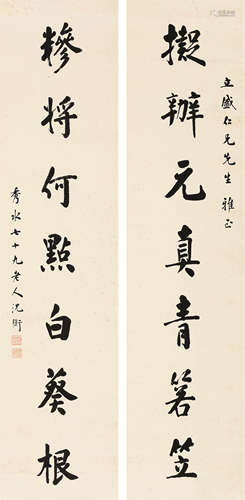 立盛仁兄先生雅正
擬辦元真青箬笠
糝將何點白葵根
秀水七十九老人沈衛